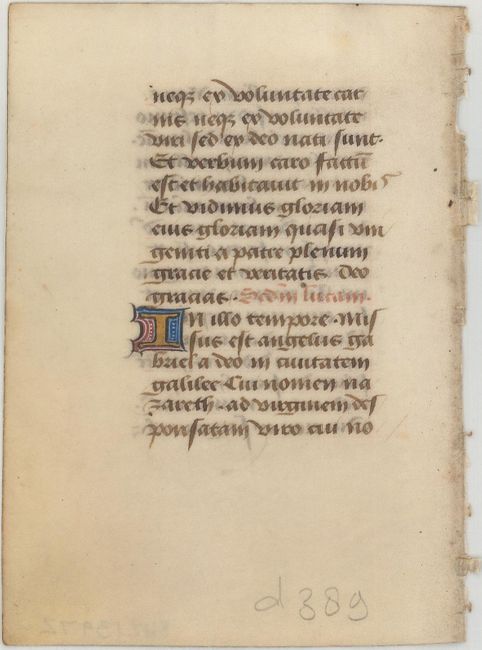 neqz ex voluntate car
nis neqz ex voluntate
viri sed ex deo nati sunt.
Et verbum caro factū
est et habitavit in nobis
Et vidimus gloriam
eius gloriam quasi vni
geniti a patre plenum
gracie et veritatis Deo
gracias. Scdm lucam.
In illo tempore. Mis
sus est angelus ga
briel a deo in civitatem
galilee Cui nomen na
zareth. ad virginem des
ponsatam viro cui no
d 389